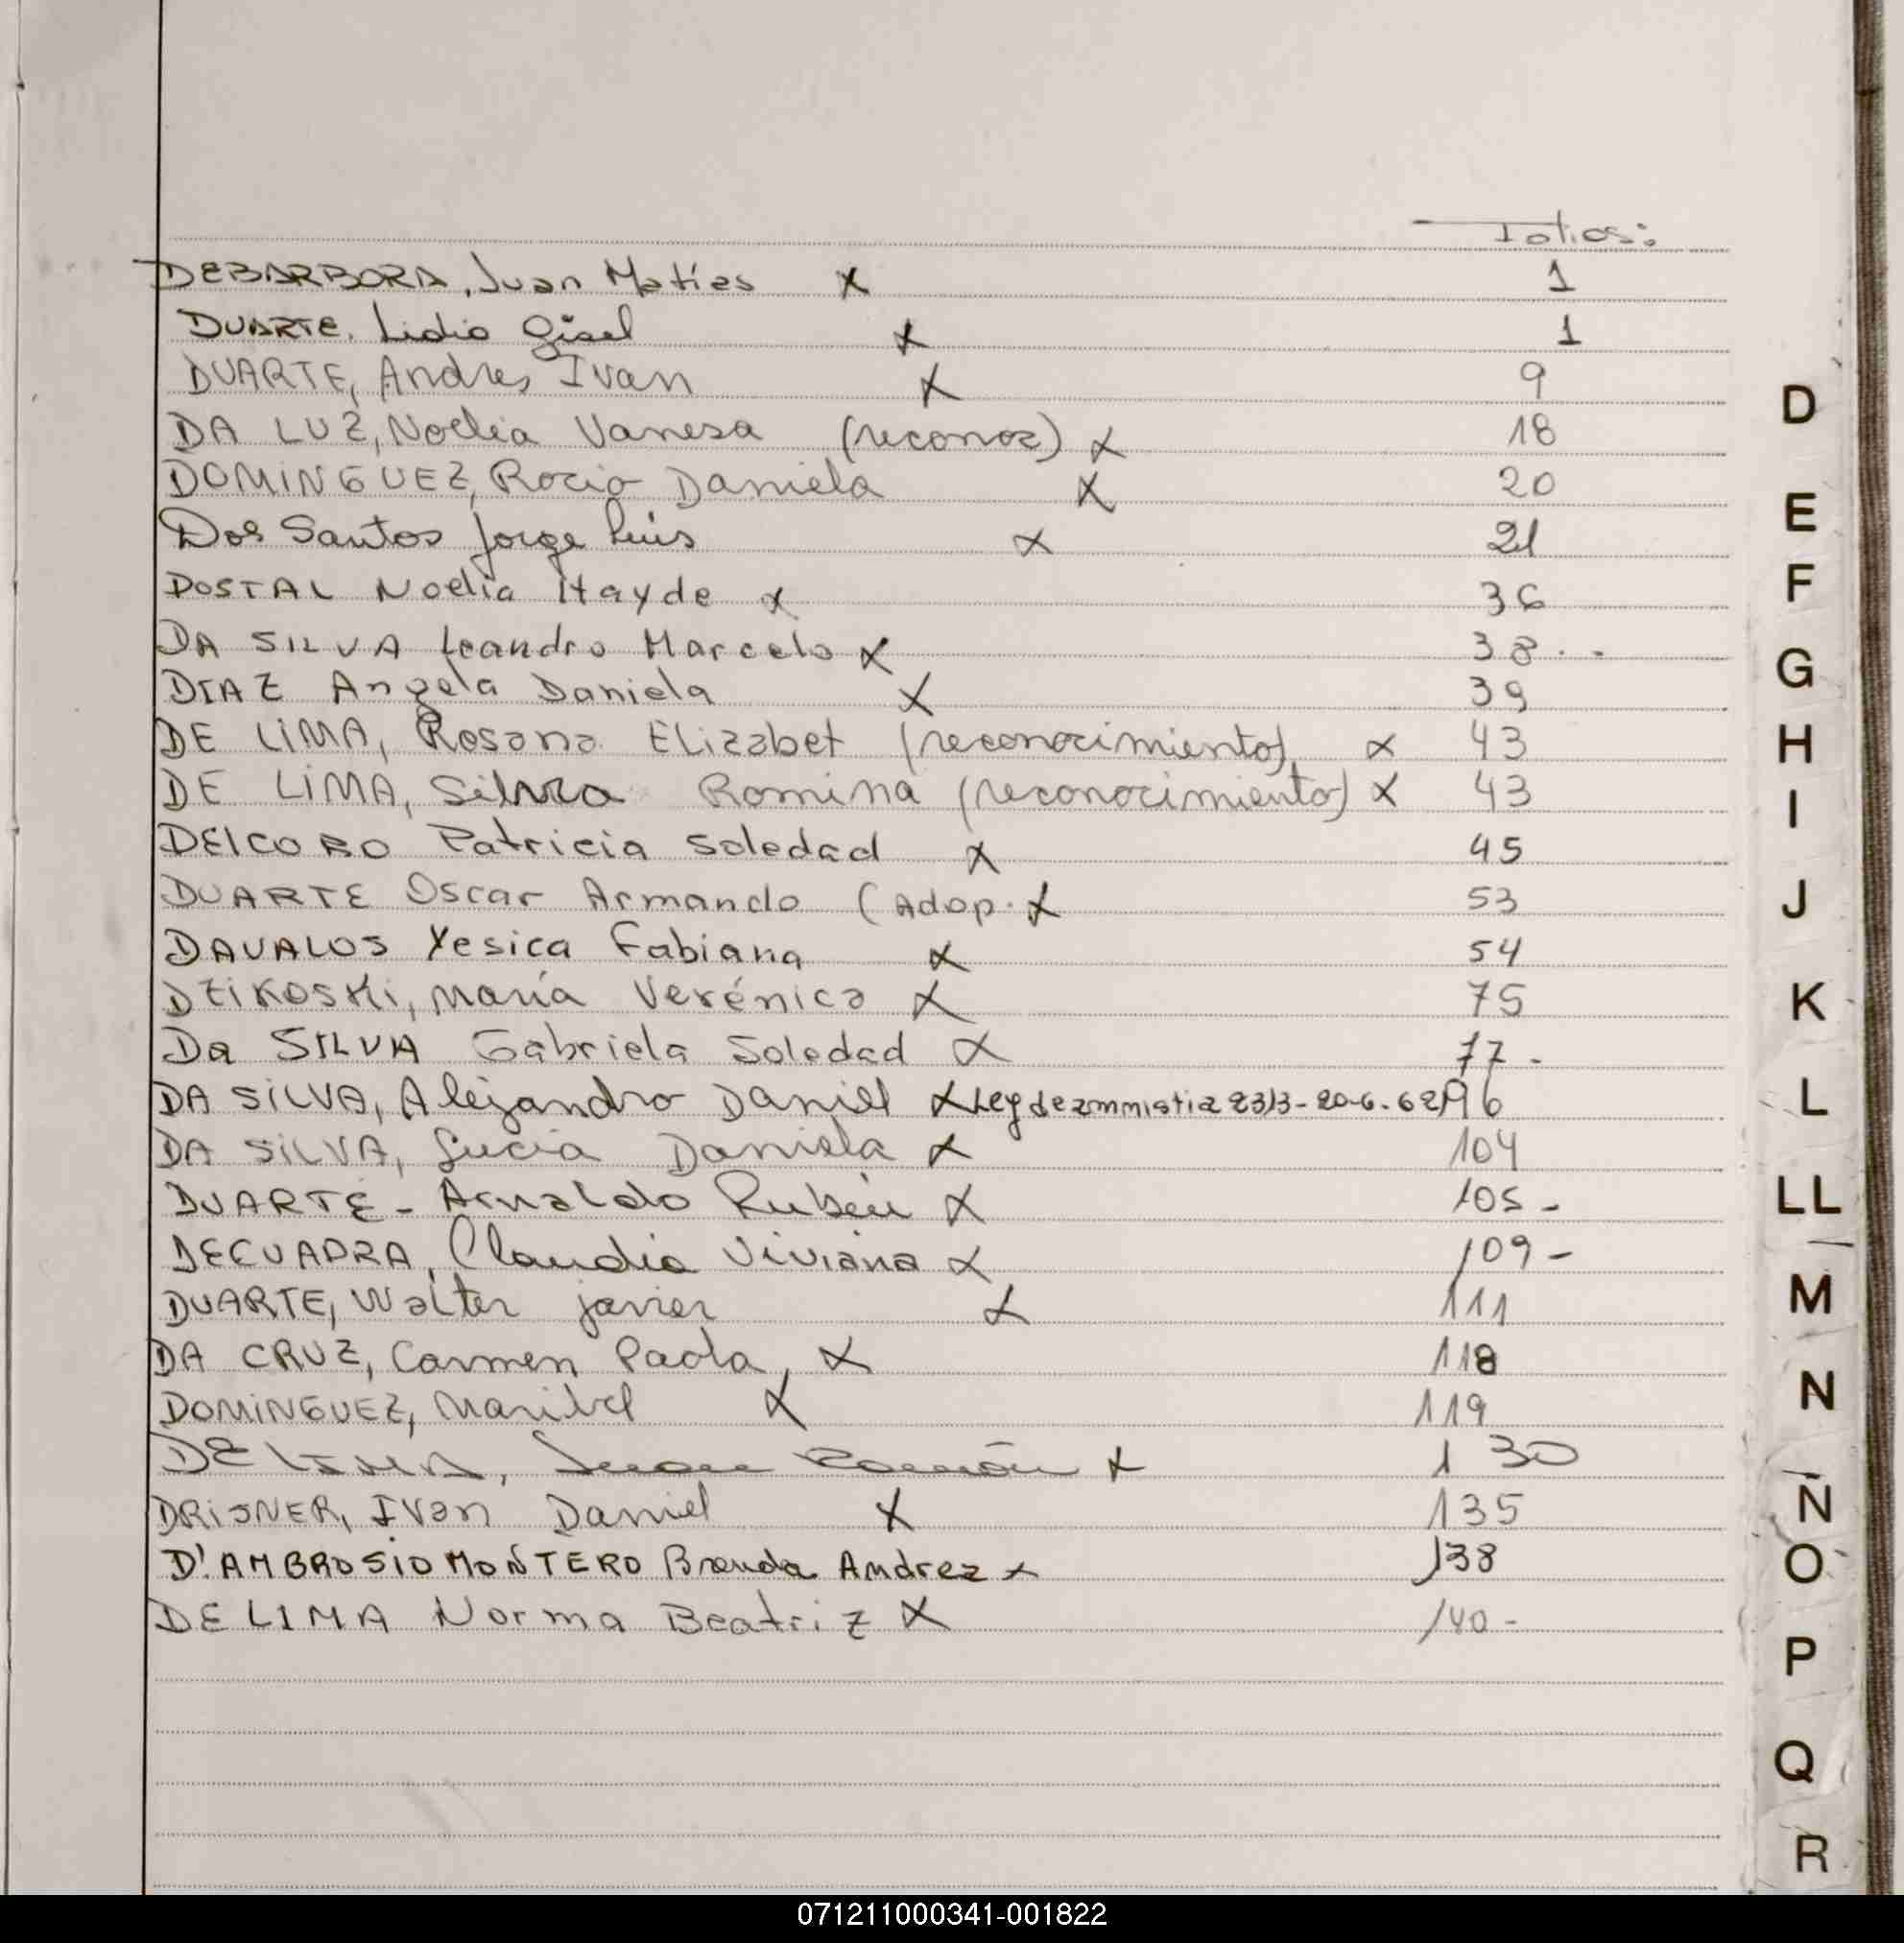 Folios:
DEBARBORA, Juan Matías X 1
DUARTE, Lidia Gisel X 1
DUARTE, Andres Ivan X 9
DA LUZ, Noelia Vanesa (reconoc) X 18
DOMINGUEZ, Rocio Daniela X 20
Dos Santos Jorge Luis X 21
DOSTAL Noelia Hayde X 36
DA SILVA Leandro Marcelo X 38 . .
DIAZ Angela Daniela X 39
DE LIMA, Rosana Elizabet (reconocimiento) X 43
DE LIMA, Silvia Romina (reconocimiento) X 43
DELCORO Patricia Soledad X 45
DUARTE Oscar Armando (Adop. X 53
DAVALOS Yesica Fabiana X 54
DZIKOSKI, María Verónica X 75
Da SILVA Gabriela Soledad X 77 -
DA SILVA, Alejandro Daniel X Ley de ammistia 23/3-20-6-62 96
DA SILVA, Lucia Daniela X 104
DUARTE - Arnaldo Rubén X 105 -
DECUADRA, Claudia Viviana X 109 -
DUARTE, Walter javier X 111
DA CRUZ, Carmen Paola, X 118
DOMINGUEZ, Maribel X 119
DE LIMA, Juan Ramón X 130
DRISNER, Ivan Daniel X 135
D'AMBROSIO MONTERO Brenda Andrea X 138
DE LIMA Norma Beatriz X 140 -
D
E
F
G
H
I
J
K
L
LL
M
N
Ñ
O
P
Q
R
071211000341-001822